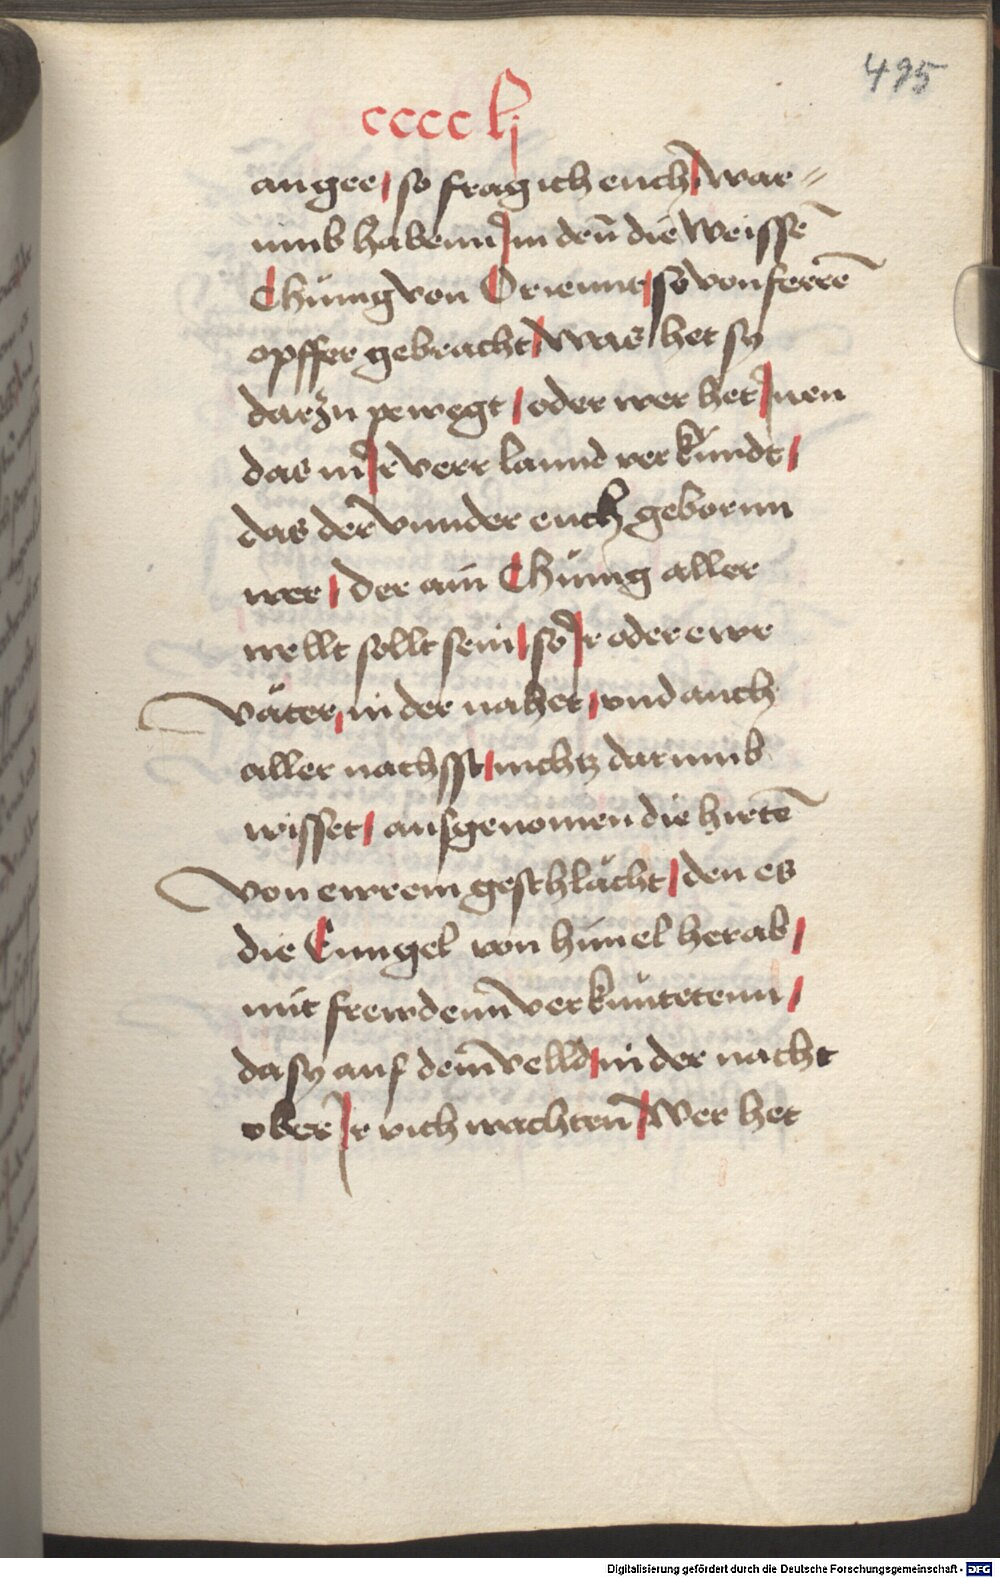 495
cccc lj
angee / so frag ich euch / war=
umb habenn Jm deñ die Weissē
Chünig von Oriennt / so von ferrē
opffer gebracht / was het sy
darzu pewegt / oder wer het Jnen
das in Jr verr lannd verkündt /
das der vnnder euch gebornn
wer / der ain Chünig aller
wellt sollt sein / so Jr oder ewr
väter / in der nahet / vnd auch
aller nachsst / nichtz darumb
wisset / ausgenomen die hirtē
von ewrem geschlächt / den es
die Enngel von himel herab /
mit frewdenn verkünteten /
da sy auf dem velld / in der nacht
vber Jr vich wachten / Wer het
Digitalisierung gefördert durch die Deutsche Forschungsgemeinschaft - DFG